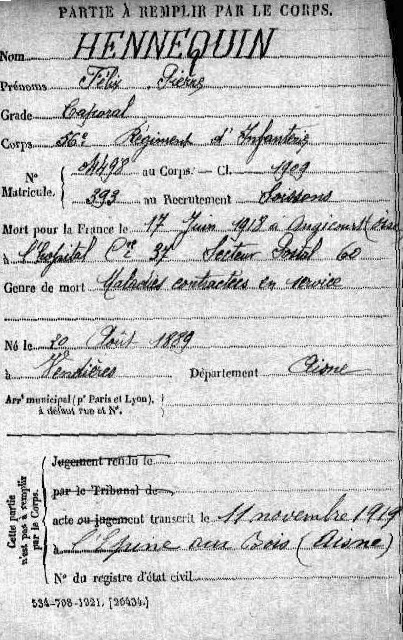 PARTIE À REMPLIR PAR LE CORPS.
Nom HENNEQUIN
Prénoms Félix Pierre
Grade Caporal
Corps 56e Régiment d'Infanterie
N° Matricule. 4498 au Corps. — Cl. 1909
393 au Recrutement Soissons
Mort pour la France le 17 Juin 1918 à Angicourt (Oise)
à l'Hopital Cre 37 Secteur Postal 60
Genre de mort Maladies contractées en service
Né le 20 Août 1889
à Vendières Département Aisne
Arrt municipal (pr Paris et Lyon),
à défaut rue et N°.
Cette partie n'est pas à remplir par le Corps.
Jugement rendu le
par le Tribunal de
acte ou jugement transcrit le 11 novembre 1919
à l'Epine aux Bois (Aisne)
N° du registre d'état civil
534-708-1921. [26434.]